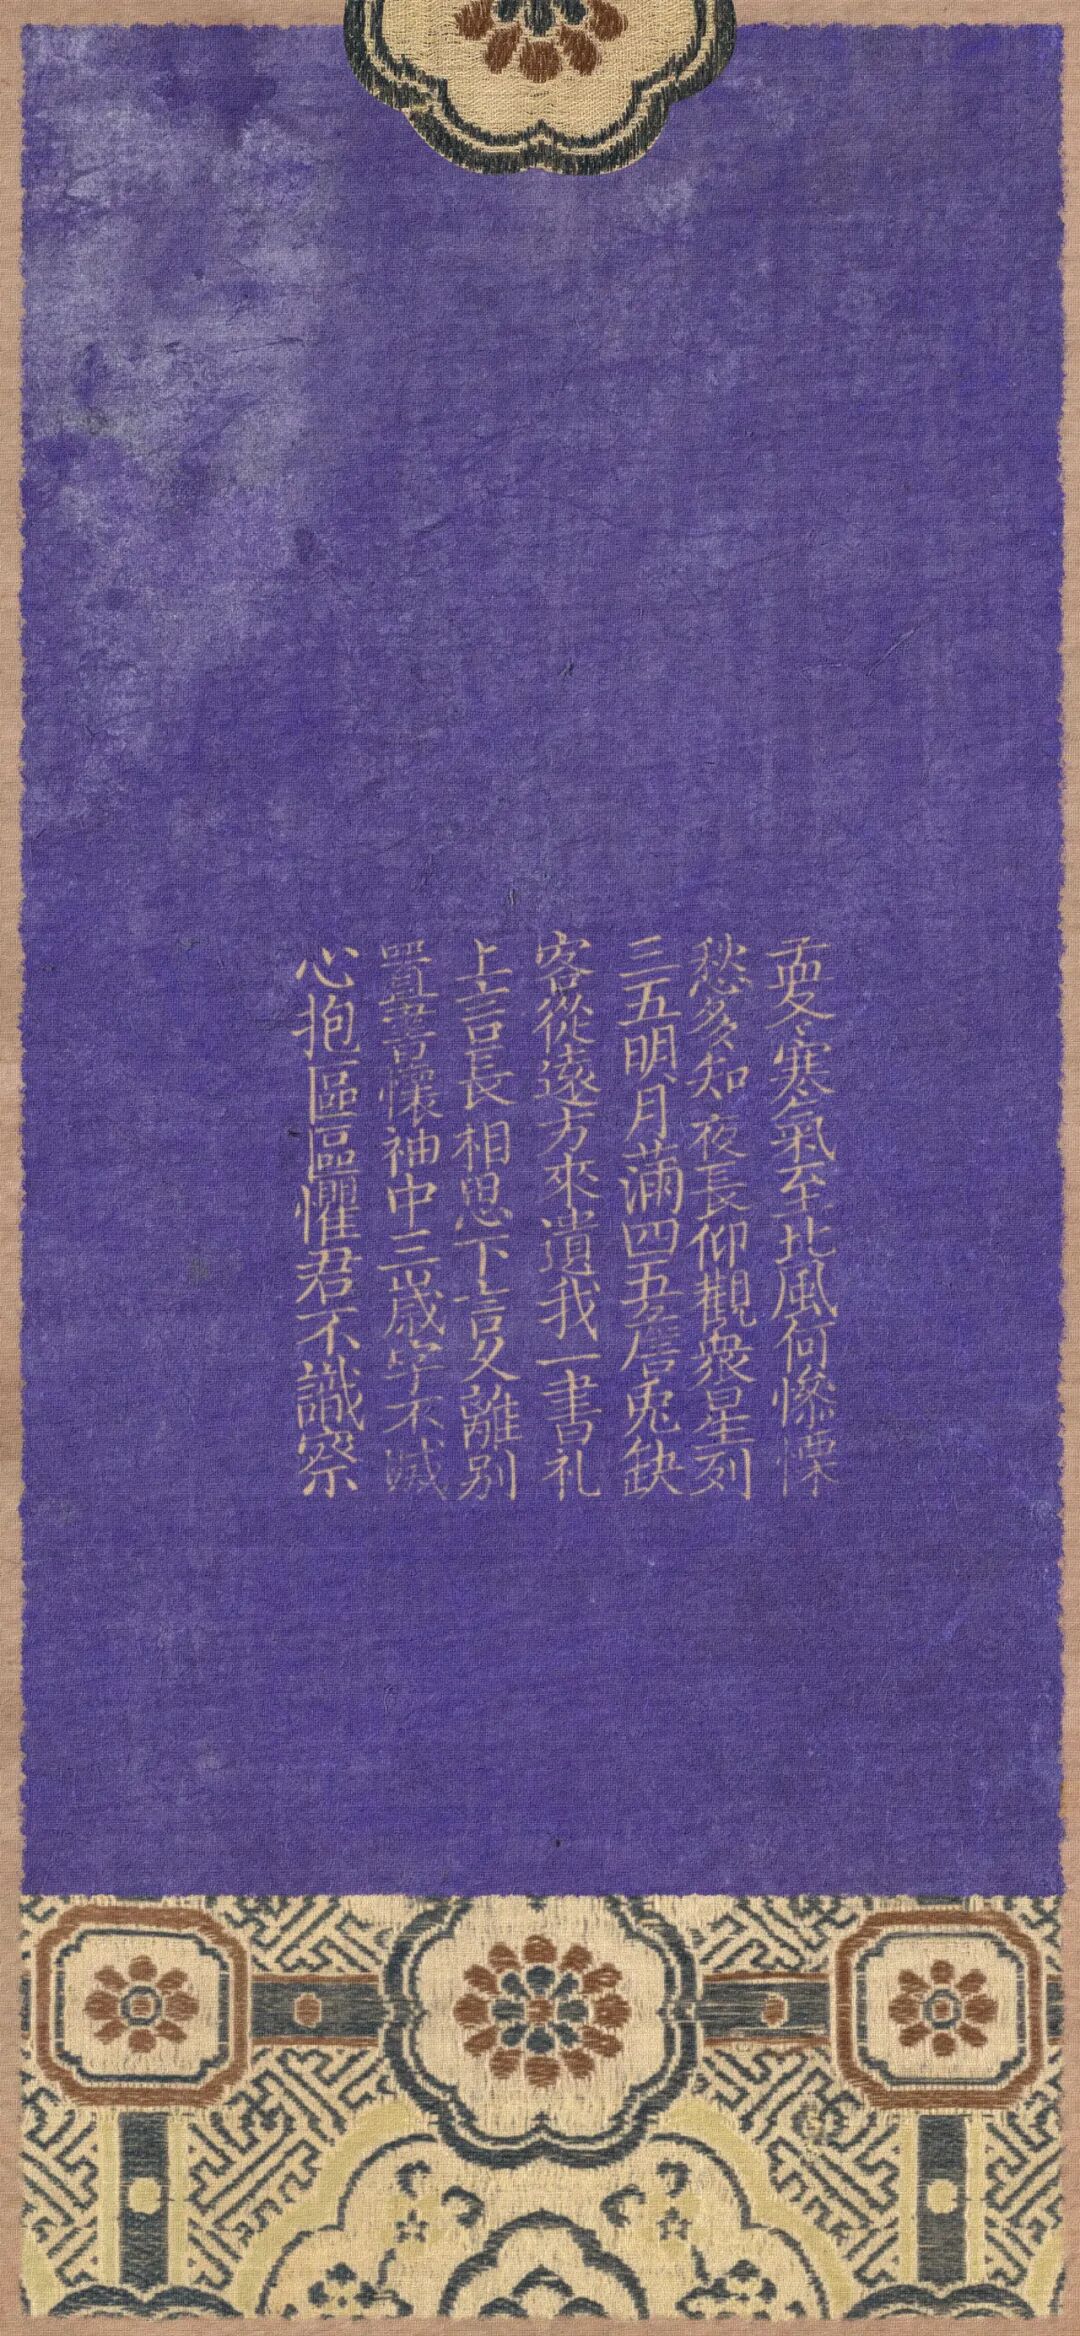 孟冬寒氣至北風何慘慄
愁多知夜長仰觀衆星列
三五明月滿四五詹兔缺
客從遠方來遺我一書札
上言長相思下言久離别
置書懷袖中三歳字不滅
心抱區區懼君不識察